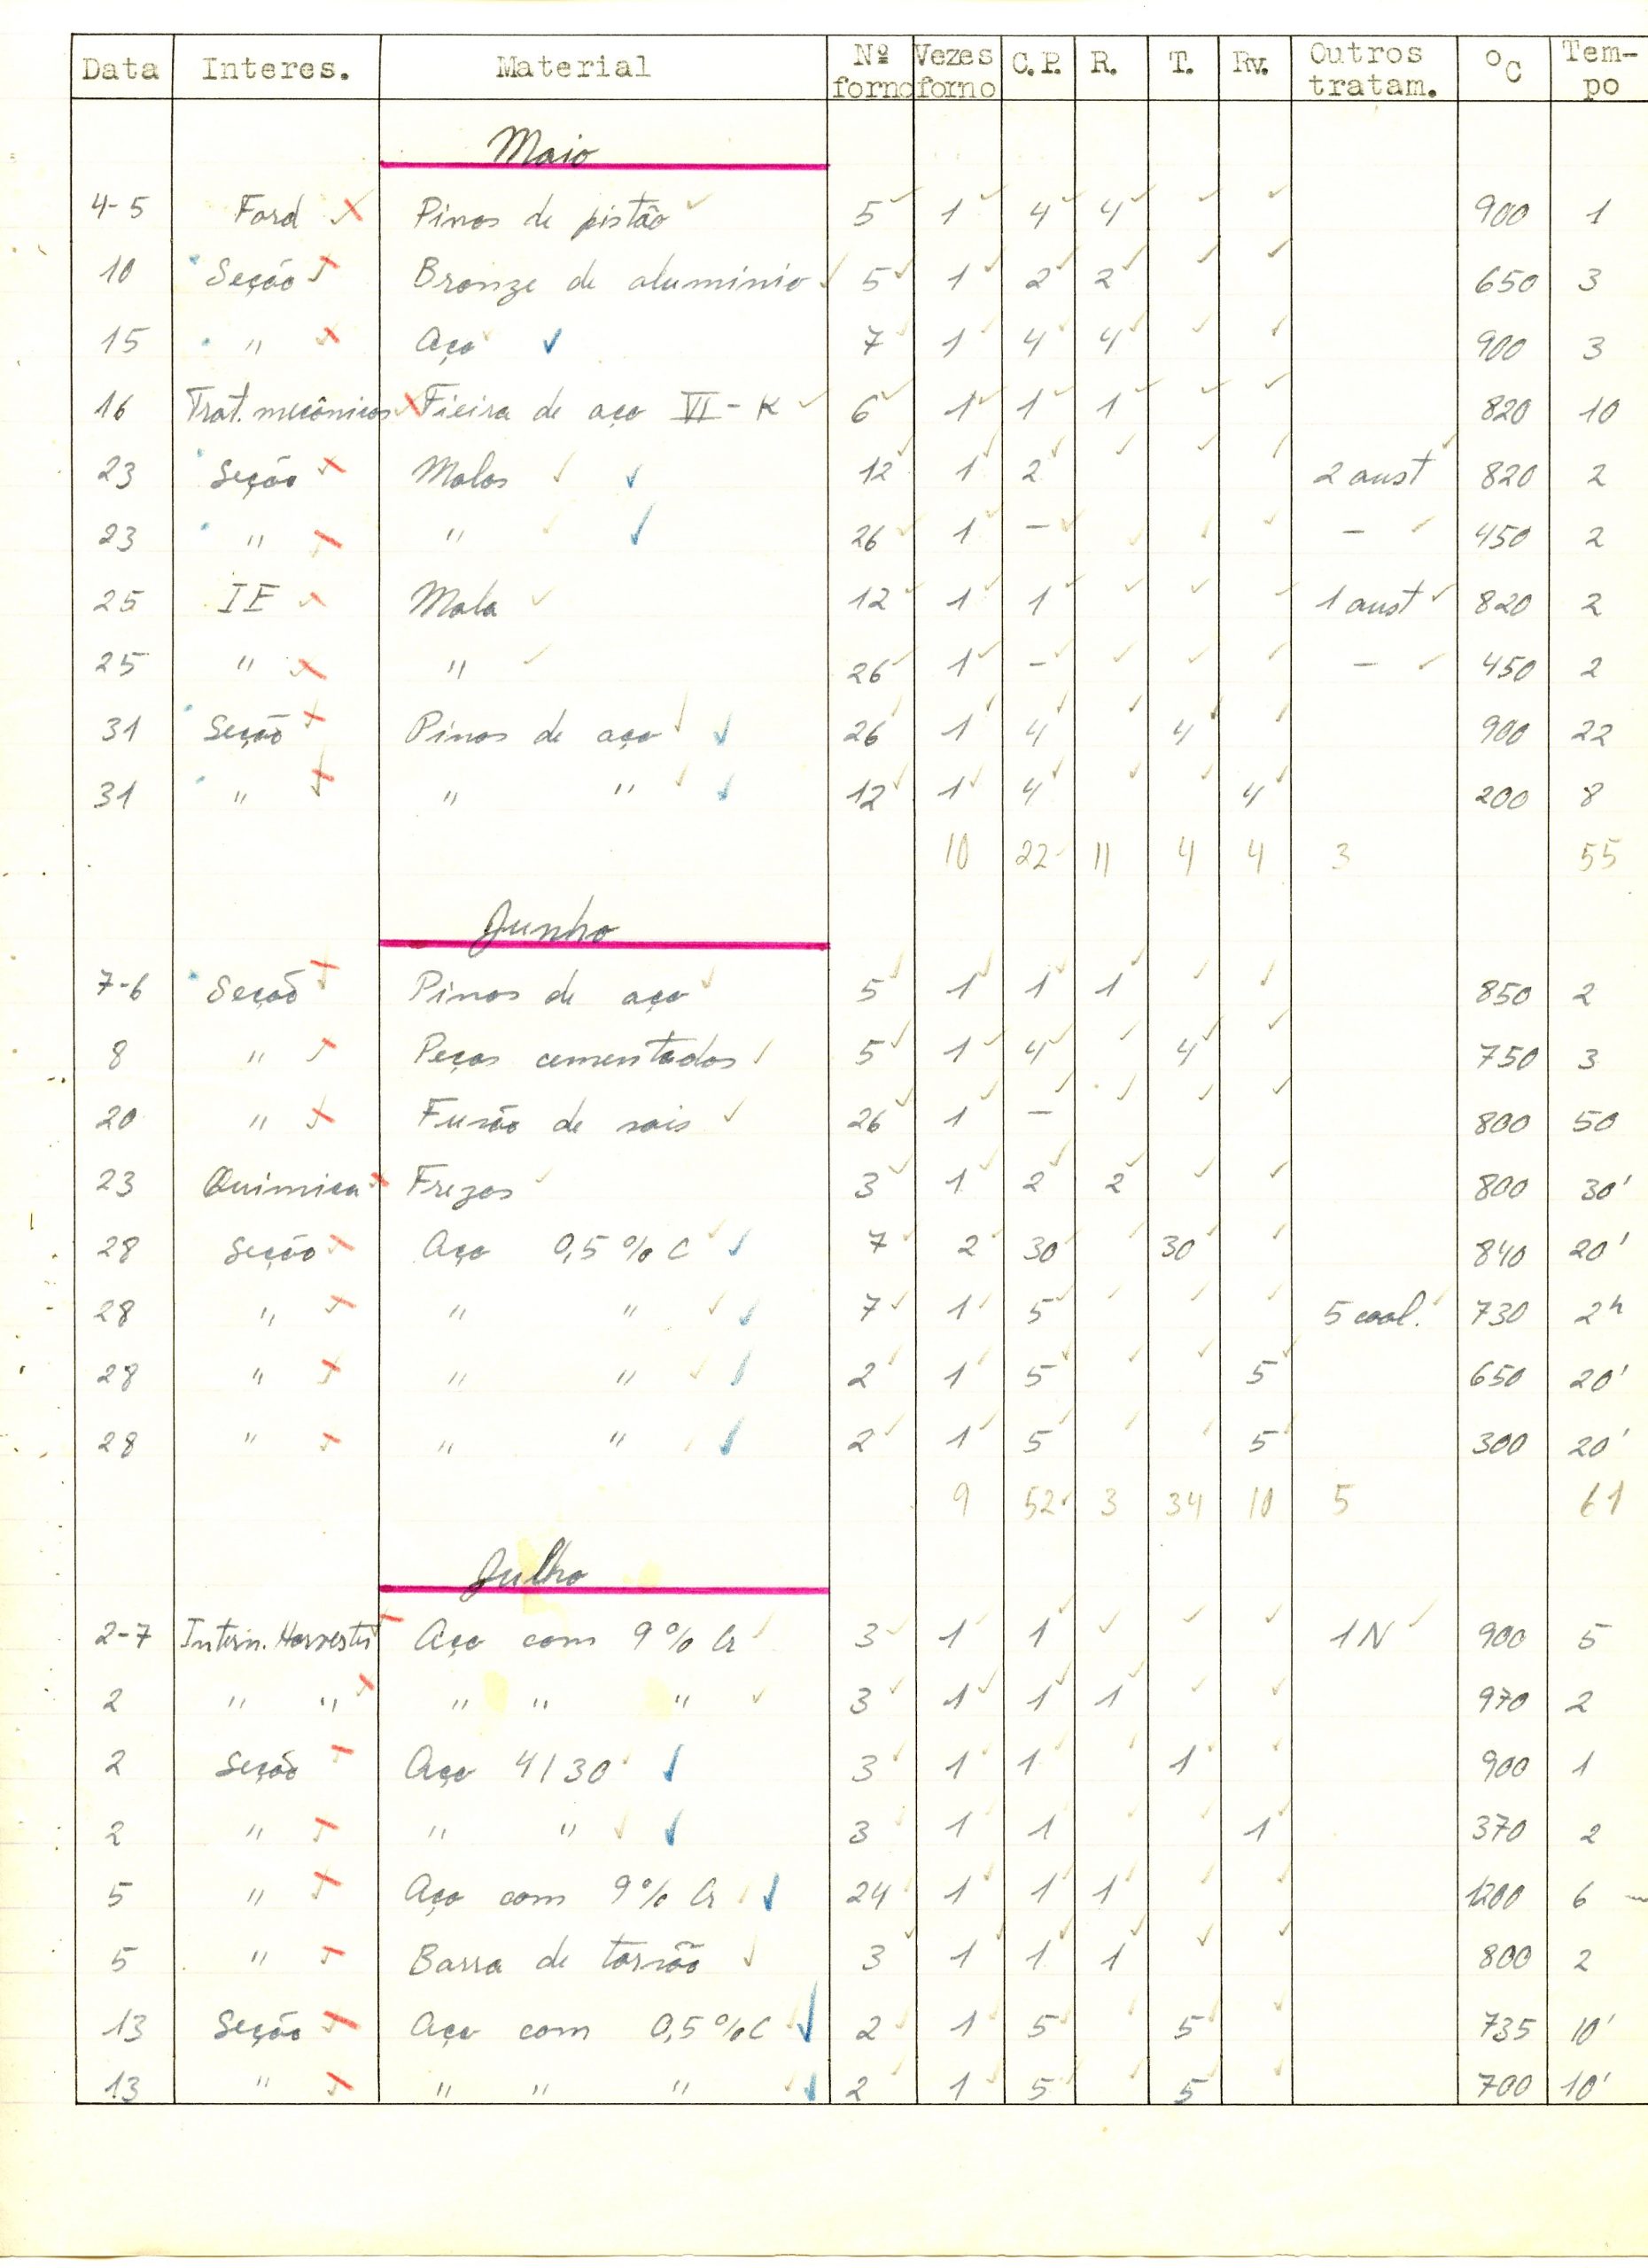 Data Interes. Material Nº forno Vezes forno C.P. R. T. Rv. Outros tratam. ºC Tempo
Maio
4-5 Ford Pinos de pistão 5 1 4 4 900 1
10 Seção Bronze de aluminio 5 1 2 2 650 3
15 " Aço 7 1 4 4 900 3
16 Trat. mecânicos Fieira de aço VI-K 6 1 1 1 820 10
23 Seção Molas 12 1 2 2 aust 820 2
23 " " 26 1 - - 450 2
25 IE Mola 12 1 1 1 aust 820 2
25 " " 26 1 - - 450 2
31 Seção Pinos de aço 26 1 4 4 900 22
31 " " " 12 1 4 4 200 8
10 22 11 4 4 3 55
Junho
7-6 Seção Pinos de aço 5 1 1 1 850 2
8 " Peças cementadas 5 1 4 4 750 3
20 " Fusão de sais 26 1 - 800 50
23 Quimica Frezas 3 1 2 2 800 30'
28 Seção Aço 0,5% C 7 2 30 30 840 20'
28 " " " 7 1 5 5 coal. 730 2h
28 " " " 2 1 5 5 650 20'
28 " " " 2 1 5 5 300 20'
9 52 3 34 10 5 61
Julho
2-7 Intern. Harvester Aço com 9% Cr 3 1 1 1N 900 5
2 " " " " " 3 1 1 1 970 2
2 Seção Aço 4130 3 1 1 1 900 1
2 " " " 3 1 1 1 370 2
5 " Aço com 9% Cr 24 1 1 1 1200 6
5 " Barra de torsão 3 1 1 1 800 2
13 Seção Aço com 0,5% C 2 1 5 5 735 10'
13 " " " " 2 1 5 5 700 10'